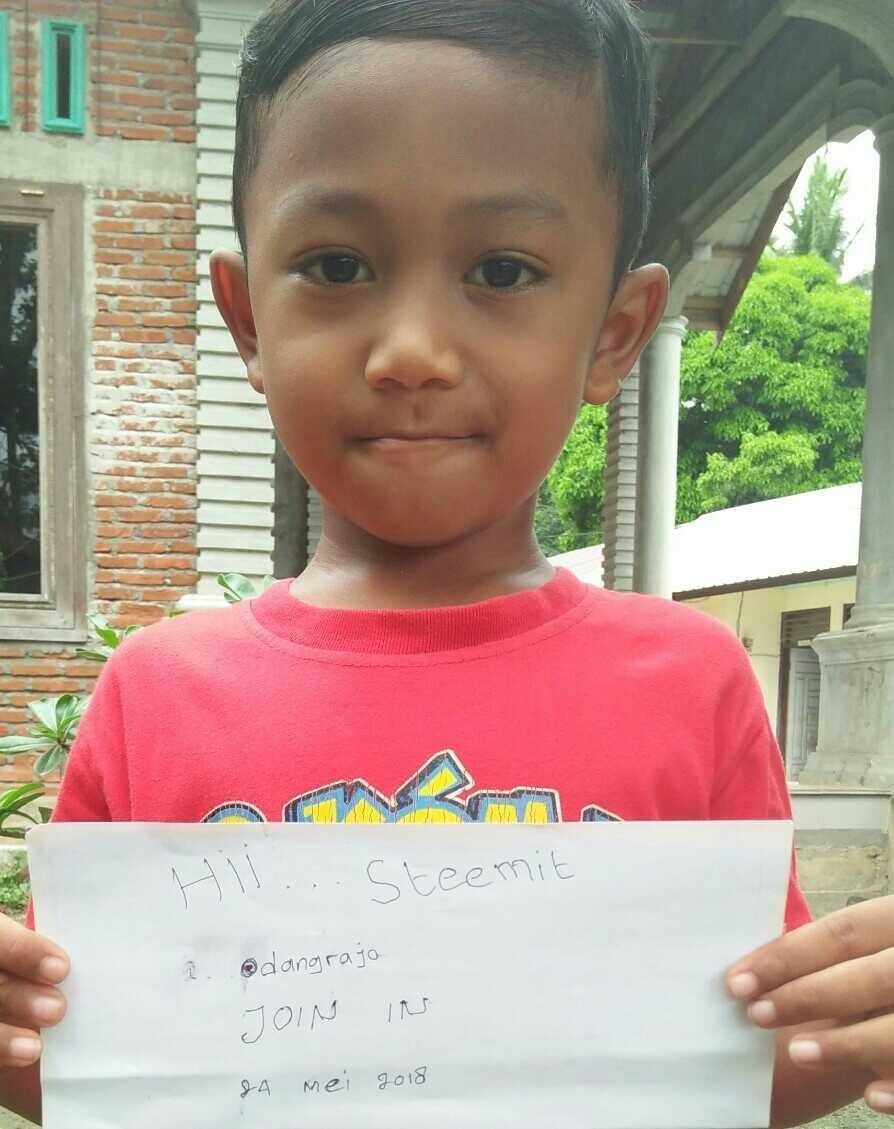 Hii... Steemit
@dangraja
JOIN IN
24 Mei 2018